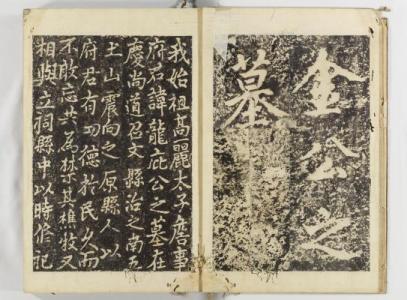 金公之
墓
我始祖高麗太子詹事
府君諱龍庇公之墓在
慶尚道召文縣治之南五
土山震向之原縣人以
府君有功德於民久而
不敢忘共為禁其樵牧又
相與立祠縣中以時修祀